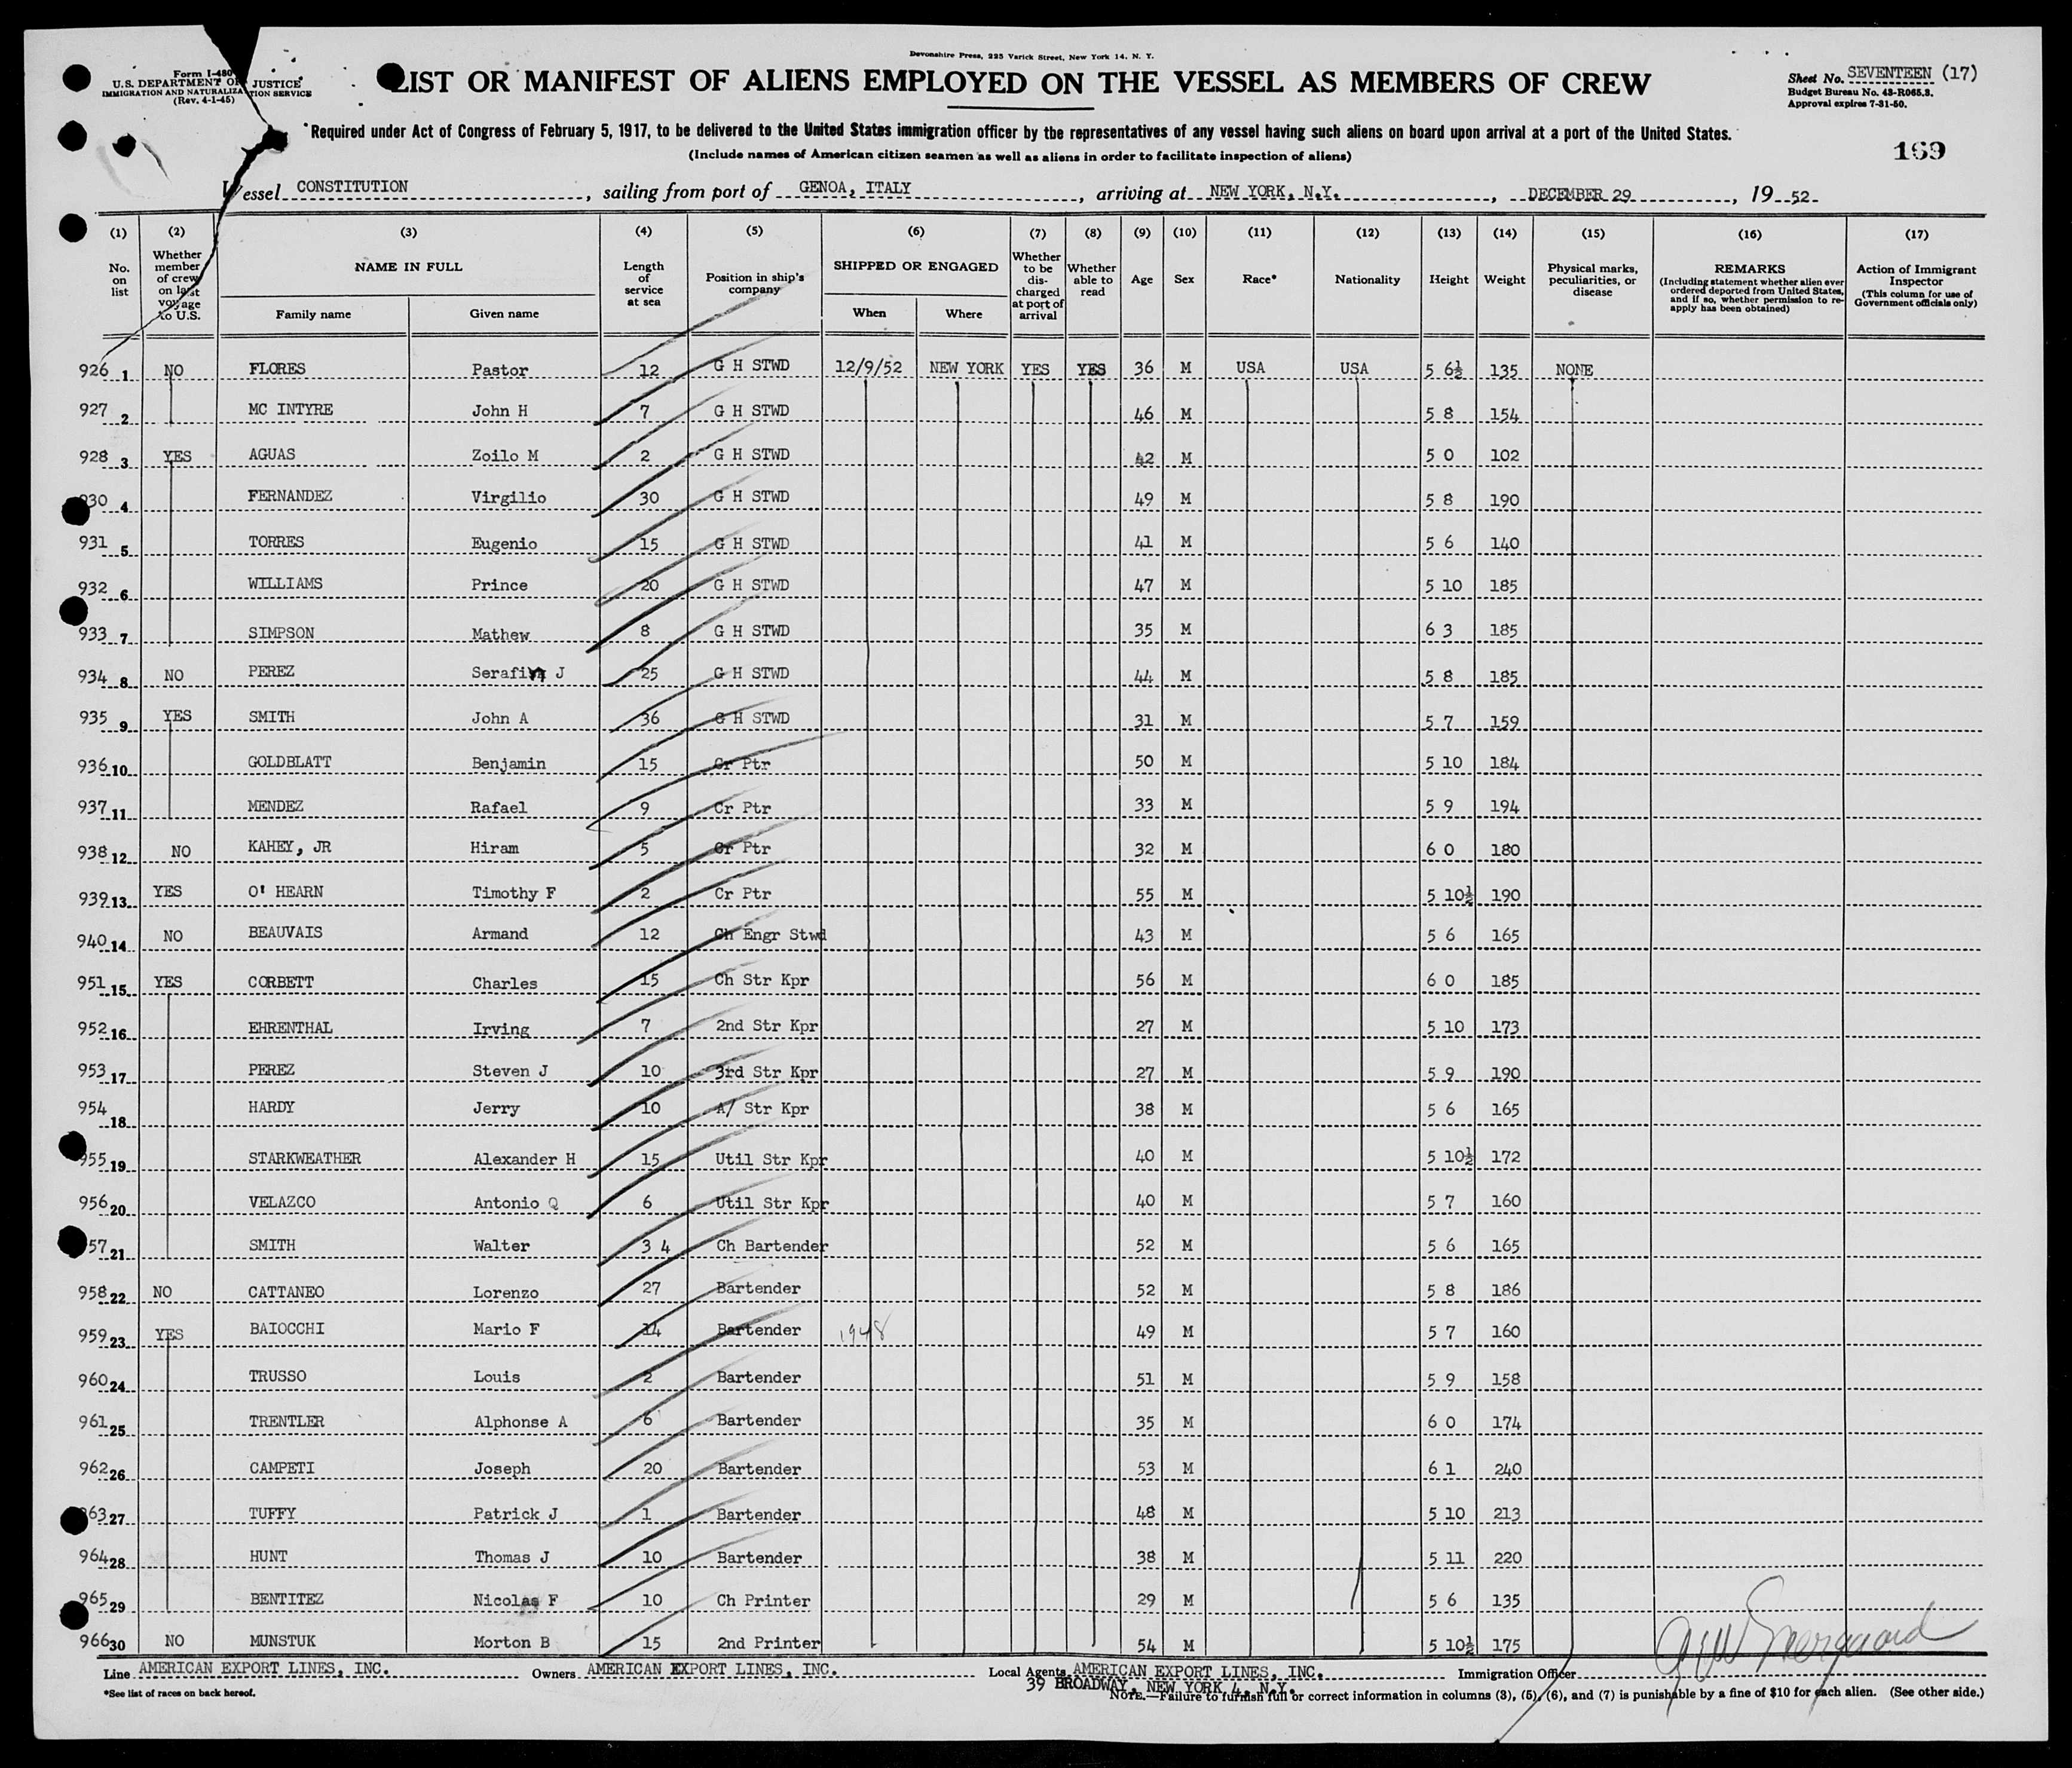 Devonshire Press, 225 Varick Street, New York 14, N. Y.
Form I-480
U.S. DEPARTMENT OF JUSTICE
IMMIGRATION AND NATURALIZATION SERVICE
(Rev. 4-1-45)
LIST OR MANIFEST OF ALIENS EMPLOYED ON THE VESSEL AS MEMBERS OF CREW
Sheet No. SEVENTEEN (17)
Budget Bureau No. 43-R065.3.
Approval expires 7-31-50.
Required under Act of Congress of February 5, 1917, to be delivered to the United States immigration officer by the representatives of any vessel having such aliens on board upon arrival at a port of the United States.
(Include names of American citizen seamen as well as aliens in order to facilitate inspection of aliens)
169
Vessel CONSTITUTION, sailing from port of GENOA, ITALY, arriving at NEW YORK, N.Y., DECEMBER 29, 19 52
(1) (2) (3) (4) (5) (6) (7) (8) (9) (10) (11) (12) (13) (14) (15) (16) (17)
No. on list
Whether member of crew on last voyage to U.S.
NAME IN FULL
Family name
Given name
Length of service at sea
Position in ship's company
SHIPPED OR ENGAGED
When
Where
Whether to be discharged at port of arrival
Whether able to read
Age
Sex
Race*
Nationality
Height
Weight
Physical marks, peculiarities, or disease
REMARKS
(Including statement whether alien ever ordered deported from United States, and if so, whether permission to reapply has been obtained)
Action of Immigrant Inspector
(This column for use of Government officials only)
926 1 NO FLORES Pastor 12 G H STWD 12/9/52 NEW YORK YES YES 36 M USA USA 5 6½ 135 NONE
927 2 MC INTYRE John H 7 G H STWD 46 M 5 8 154
928 3 YES AGUAS Zoilo M 2 G H STWD 42 M 5 0 102
930 4 FERNANDEZ Virgilio 30 G H STWD 49 M 5 8 190
931 5 TORRES Eugenio 15 G H STWD 41 M 5 6 140
932 6 WILLIAMS Prince 20 G H STWD 47 M 5 10 185
933 7 SIMPSON Mathew 8 G H STWD 35 M 6 3 185
934 8 NO PEREZ Serafin J 25 G H STWD 44 M 5 8 185
935 9 YES SMITH John A 36 G H STWD 31 M 5 7 159
936 10 GOLDBLATT Benjamin 15 Cr Ptr 50 M 5 10 184
937 11 MENDEZ Rafael 9 Cr Ptr 33 M 5 9 194
938 12 NO KAHEY, JR Hiram 5 Cr Ptr 32 M 6 0 180
939 13 YES O' HEARN Timothy F 2 Cr Ptr 55 M 5 10½ 190
940 14 NO BEAUVAIS Armand 12 Ch Engr Stwd 43 M 5 6 165
951 15 YES CORBETT Charles 15 Ch Str Kpr 56 M 6 0 185
952 16 EHRENTHAL Irving 7 2nd Str Kpr 27 M 5 10 173
953 17 PEREZ Steven J 10 3rd Str Kpr 27 M 5 9 190
954 18 HARDY Jerry 10 A/ Str Kpr 38 M 5 6 165
955 19 STARKWEATHER Alexander H 15 Util Str Kpr 40 M 5 10½ 172
956 20 VELAZCO Antonio Q 6 Util Str Kpr 40 M 5 7 160
57 21 SMITH Walter 3 4 Ch Bartender 52 M 5 6 165
958 22 NO CATTANEO Lorenzo 27 Bartender 52 M 5 8 186
959 23 YES BAIOCCHI Mario F 14 Bartender 1948 49 M 5 7 160
960 24 TRUSSO Louis 2 Bartender 51 M 5 9 158
961 25 TRENTLER Alphonse A 6 Bartender 35 M 6 0 174
962 26 CAMPETI Joseph 20 Bartender 53 M 6 1 240
963 27 TUFFY Patrick J 1 Bartender 48 M 5 10 213
964 28 HUNT Thomas J 10 Bartender 38 M 5 11 220
965 29 BENTITEZ Nicolas F 10 Ch Printer 29 M 5 6 135
966 30 NO MUNSTUK Morton B 15 2nd Printer 54 M 5 10½ 175
Line AMERICAN EXPORT LINES, INC. Owners AMERICAN EXPORT LINES, INC. Local Agents AMERICAN EXPORT LINES, INC. Immigration Officer
39 BROADWAY, NEW YORK 4, N.Y.
*See list of races on back hereof.
NOTE.—Failure to furnish full or correct information in columns (3), (5), (6), and (7) is punishable by a fine of $10 for each alien. (See other side.)